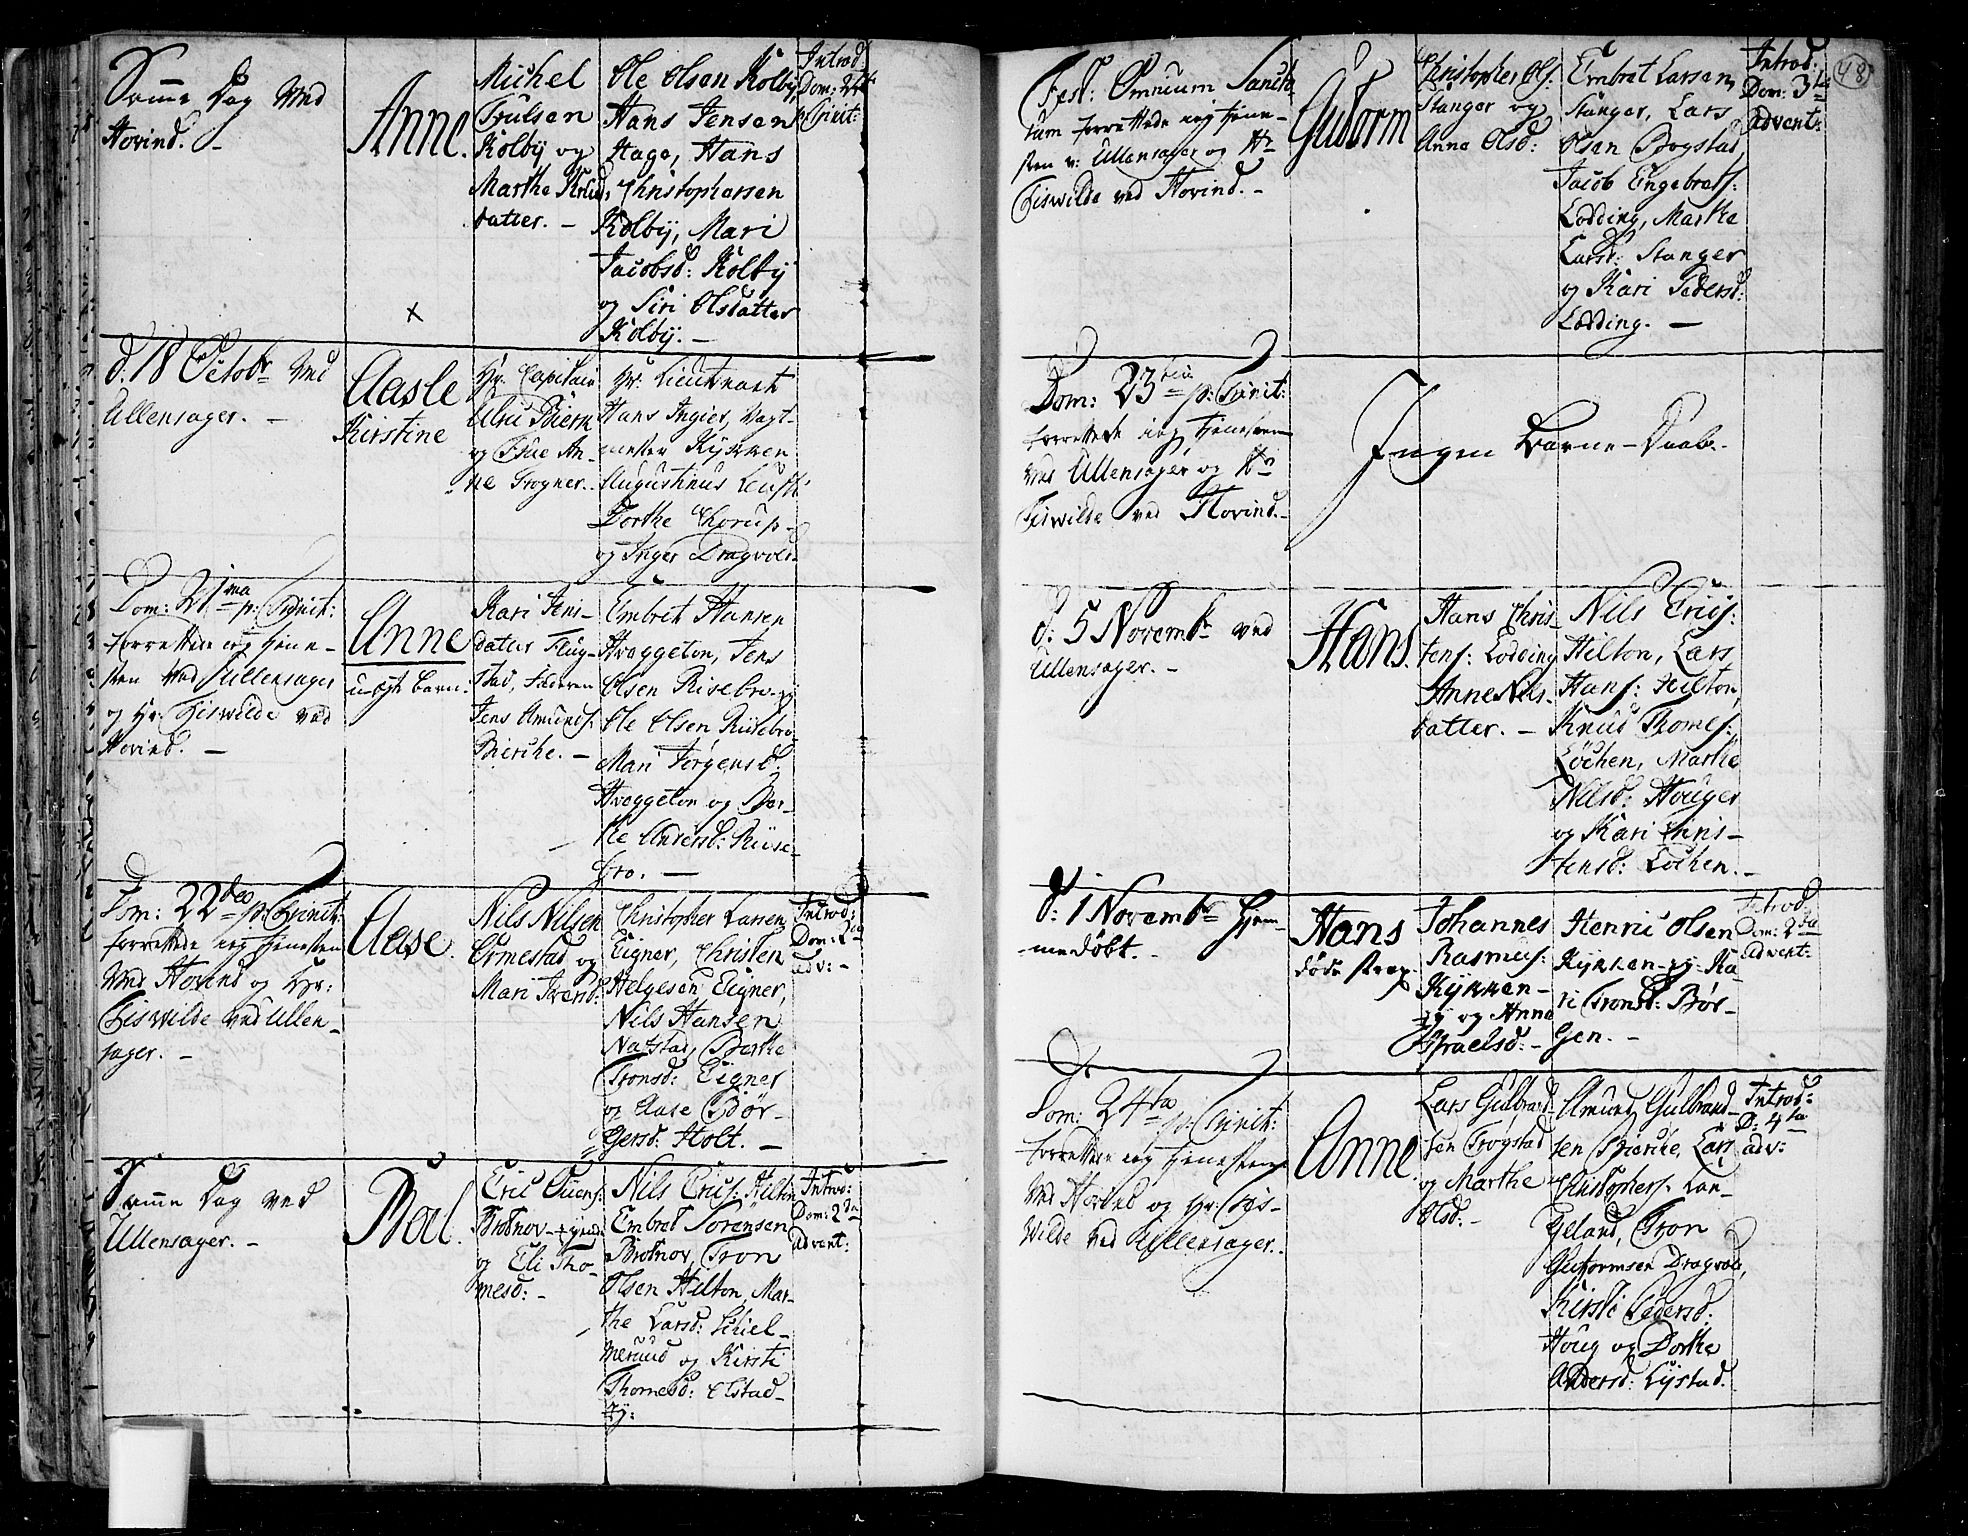 Same Dag Ved
Hovind. -
Anne.
Michel
Trulsen
Kolby og
Marthe Knud:
datter. -
Ole Olsen Kolby,
Hans Jensen
Hage, Hans
Christophersen
Kolby, Mari
Jacobsd: Kolby
og Siri Olsdatter
Kolby. -
Introd:
Dom: 22
p. Trinit:
x
d. 18 Octobr Ved
Ullensager. -
Aasle
Kirstine
Hr. Capitain
og Frue An-
ne Grogner.
Hr. Lieutnant
Hans Ingier, Vagt-
mester Rykken
Augustinus
Dorthe Thorup
og Inger Dragvold.
Dom: 21ma p: Trinit:
forrettede ieg Tiene-
sten Ved Ullensager
og Hr. Tiswilde ved
Hovind. -
Anne
u-ægte barn.
Kari Jens-
datter Flug-
stad, Faderen
Jens Amunds:
Bierche. -
Embret Hansen
Hvaggeton, Jens
Olsen Risebro,
Ole Olsen Riisebro,
Mari Jørgensd:
Hvaggeton og Ber-
the Andersd: Riise-
bro. -
Dom: 22den p: Trinit:
forrettede ieg Tienesten
Ved Hovind og Hr:
Tiswilde ved Ullen-
sager. -
Aase.
Nils Nilsen
Ermestad og
Mari Iversd:
Christopher Larsen
Eigner, Christen
Helgesen Eigner,
Nils Hansen
Natstad, Berthe
Tronsd: Eigner
og Aase Bør-
gersd: Holt. -
Introd:
Dom: 2da
adv: -
Same Dag ved
Ullensager. -
Roal.
Eric Ouens:
Brotnov-eye
og Eli Tho-
mesd: -
Nils Erics: Hilton
Embret Sørensen
Brotnov, Tron
Olsen Hilton, Mar-
the Larsd: Skiel-
merud og Kirsti
Thomesd: Elstad-
ey:
Introd:
Dom: 2da
Advent:
48
Fest: Omnium Sancto
rum forrettede ieg tiene-
sten v: Ullensager og Hr
Tiswilde ved Hovind. -
Gutorm
Christopher Ols:
Stanger og
Anne Olsd:
Embret Larsen
Stanger, Lars
Olsen Bogstad,
Jacob Engebrets:
Lodding, Marthe
Larsd: Stanger
og Kari Pedersd:
Lodding. -
Introd:
Dom: 3tia
advent:
Dom: 23tia p: Trinit:
forrettede ieg Tienesten
Ved Ullensager og Hr
Tiswilde ved Hovind. -
Ingen Barne-Daab.
d: 5 Novembr ved
Ullensager. -
Hans.
Hans Chris-
tens: Lodding
Anne Nils-
datter. -
Nils Erics:
Hilton, Lars
Hans: Hilton,
Knud Thomes:
Løchen, Marthe
Nilsd: Houger
og Kari Chris-
tensd: Løchen. -
d: 1 Novembr Hiem-
medøbt. -
Hans
døde strax.
Johannes
Rasmus:
Kykken-
ey og Anne
Israelsd: -
Henric Olsen
Kykken-ey. Ka
ri Tronsd: Bør-
gen. -
Introd:
Dom: 2da
advent:
Dom: 24ta p: Trinit:
forrettede ieg tienesten
Ved Hovind og Hr. Tis-
wilde ved Ullensager.
Anne.
Lars Gulbrand-
sen Trogstad
og Marthe
Olsd: -
Amund Gulbrand-
sen Bierche, Lars
Christophers: Lan-
geland, Tron
Gutormsen Dragvold,
Kirsti Pedersd:
Houg og Dorthe
Andersd: Lystad.
Introd:
D: 4ta
adv: